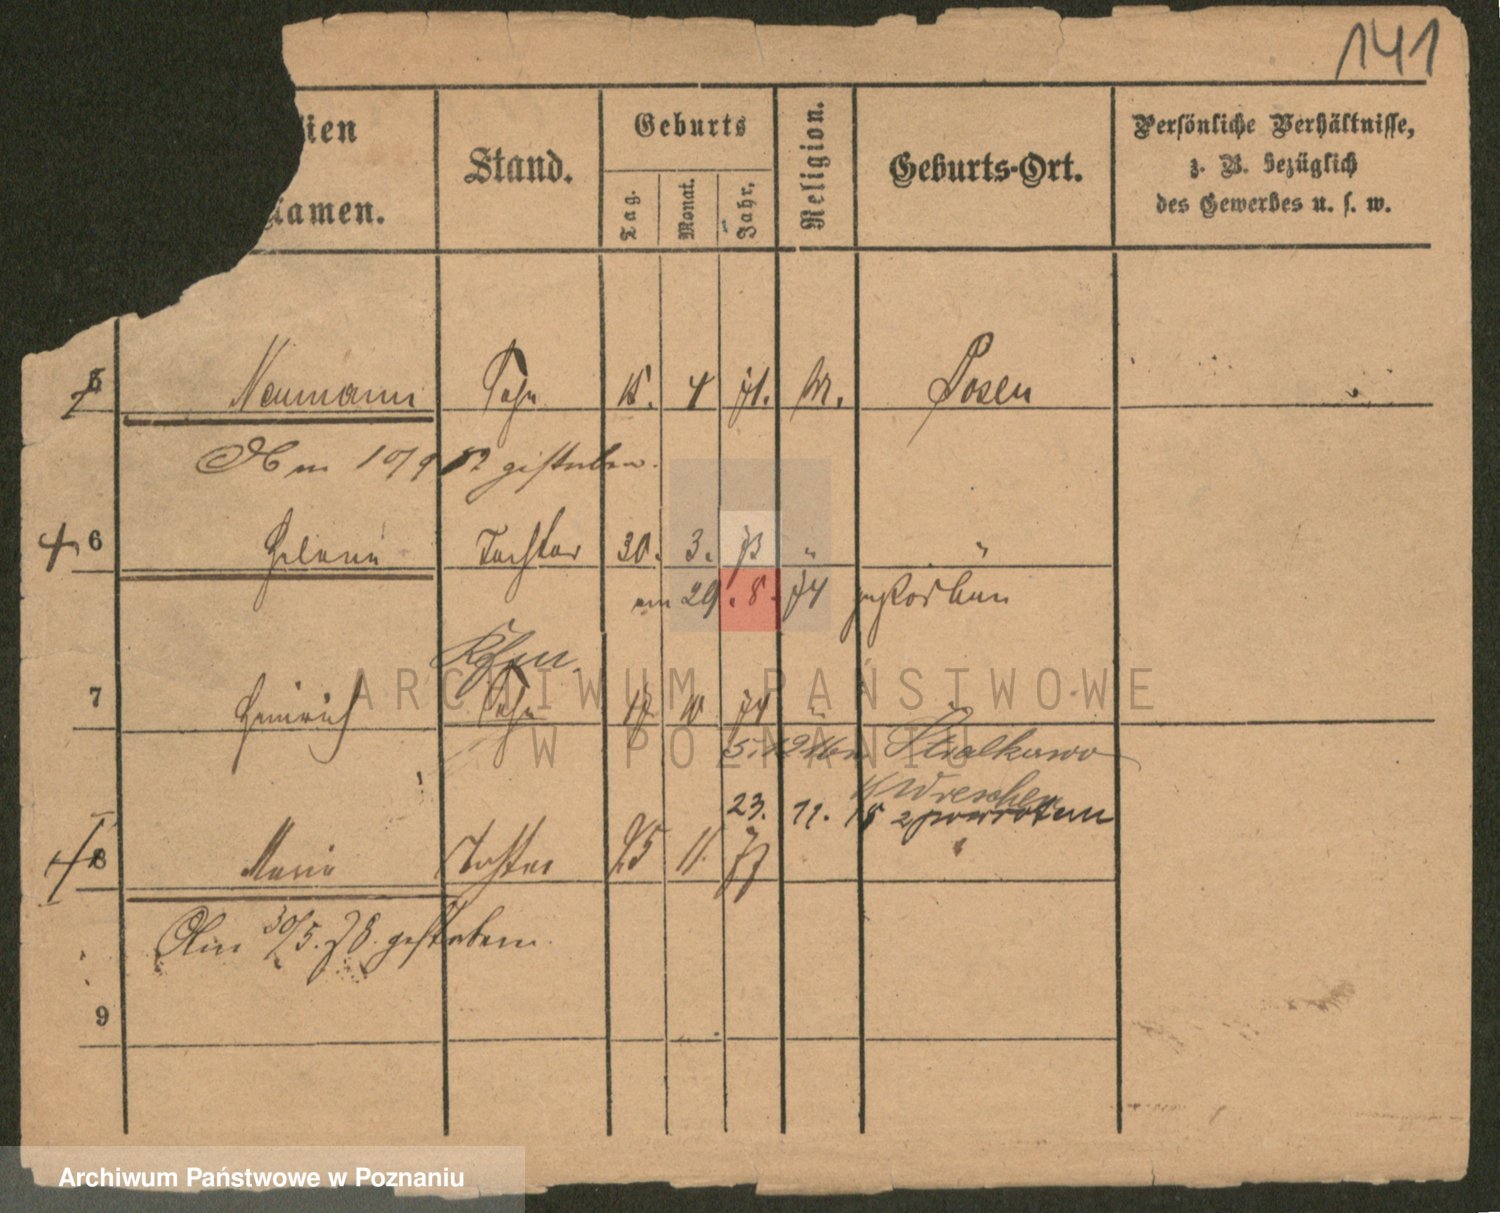 141
Stand.
Geburts
Tag.
Monat.
Jahr.
Religion.
Geburts-Ort.
Persönliche Verhältnisse,
z. B. bezüglich
des Gewerbes u. s. w.
ien
Namen.
5 Neumann Sohn 15. 4 71. M. Posen
10/9 82 gestorben.
6 Helene Tochter 30. 3. 73 " "
am 29. 8. 74 gestorben
7 Heinrich Sohn 17 74 "
5. 12 Stralkowo
Wreschen
23. 11.
8 Marie Tochter 25 11. 77 "
Am 30/5. 78. gestorben.
9
ARCHIWUM PAŃSTWOWE
W POZNANIU
Archiwum Państwowe w Poznaniu